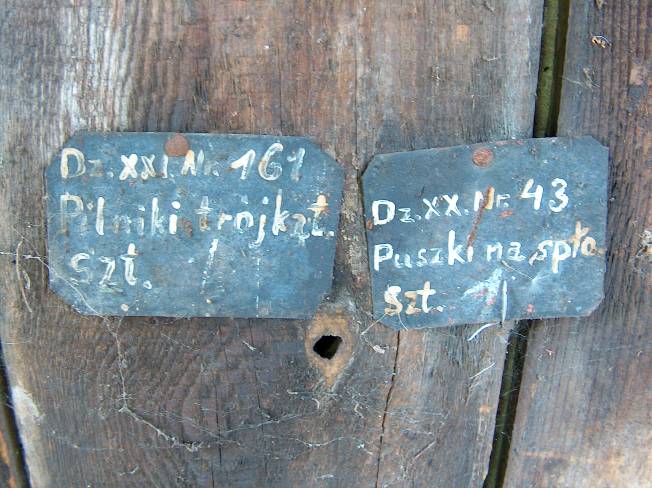 Dz. XXI. Nr. 161
Pilniki trójkąt.
szt. 1
Dz. XX. Nr. 43
Puszki na spło.
szt. 1